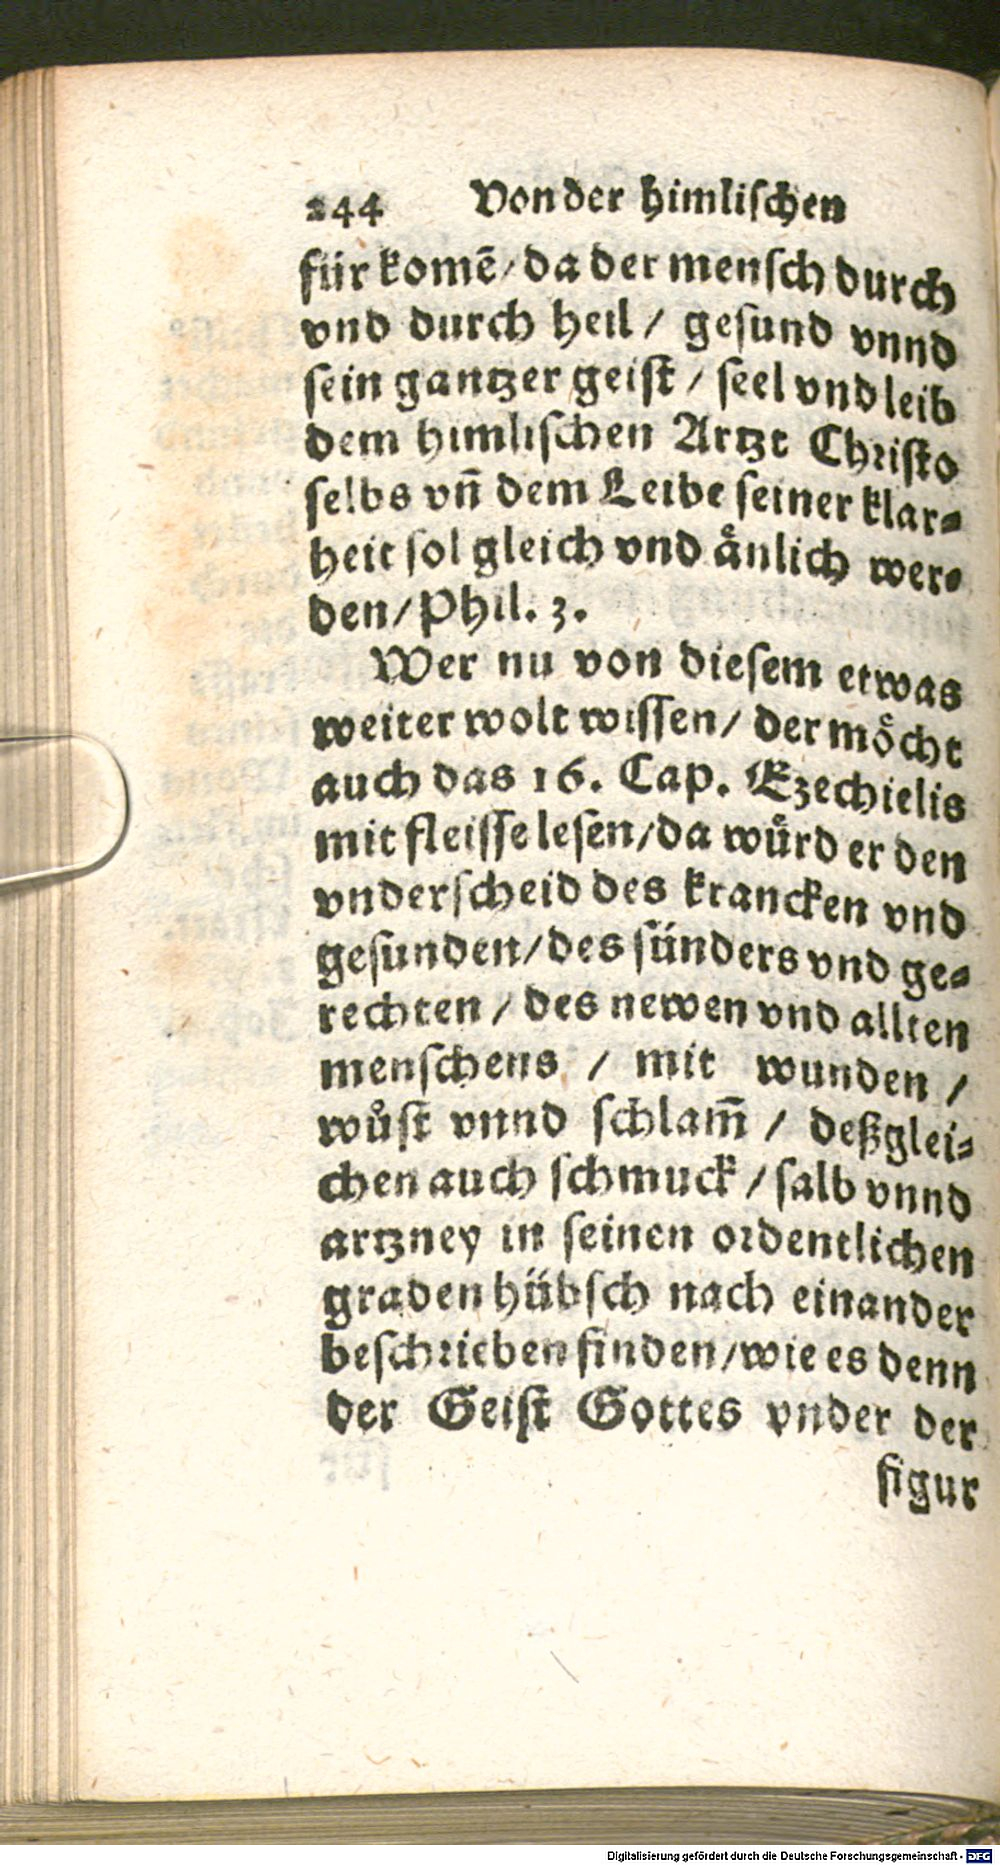 244 Von der himlischen
für komẽ / da der mensch durch
vnd durch heil / gesund vnnd
sein gantzer geist / seel vnd leib
dem himlischen Artzt Christo
selbs vñ dem Leibe seiner klar=
heit sol gleich vnd aͤnlich wer=
den / Phil. 3.
Wer nu von diesem etwas
weiter wolt wissen / der moͤcht
auch das 16. Cap. Ezechielis
mit fleisse lesen / da wuͤrd er den
vnderscheid des krancken vnd
gesunden / des sünders vnd ge=
rechten / des newen vnd allten
menschens / mit wunden /
wuͤst vnnd schlam̃ / deßglei=
chen auch schmuck / salb vnnd
artzney in seinen ordentlichen
graden hübsch nach einander
beschrieben finden / wie es denn
der Geist Gottes vnder der
figur
Digitalisierung gefördert durch die Deutsche Forschungsgemeinschaft - DFG